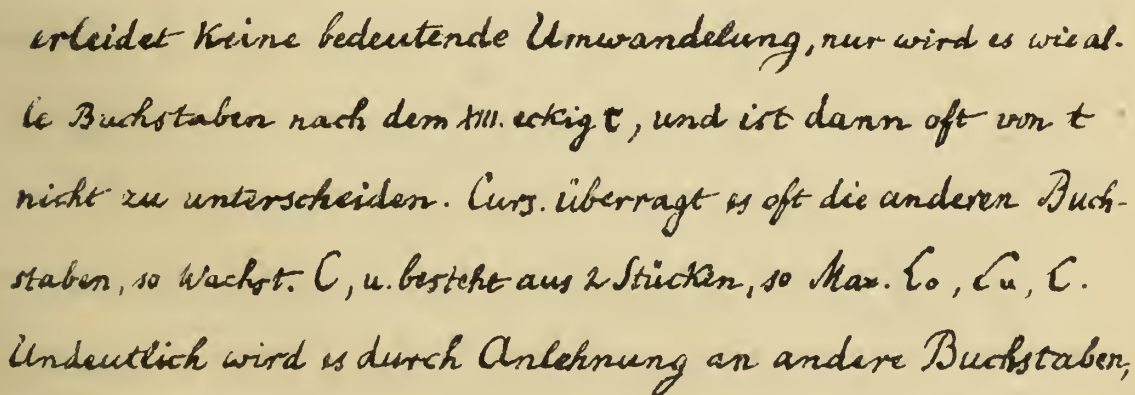 erleidet keine bedeutende Umwandelung, nur wird es wie al-
le Buchstaben nach dem XIII. eckig τ, und ist dann oft von t
nicht zu unterscheiden. Curs. überragt es oft die anderen Buch-
staben, so Wachst. C, u. besteht aus 2 Stücken, so Max. Co, Cu, C.
Undeutlich wird es durch Anlehnung an andere Buchstaben,